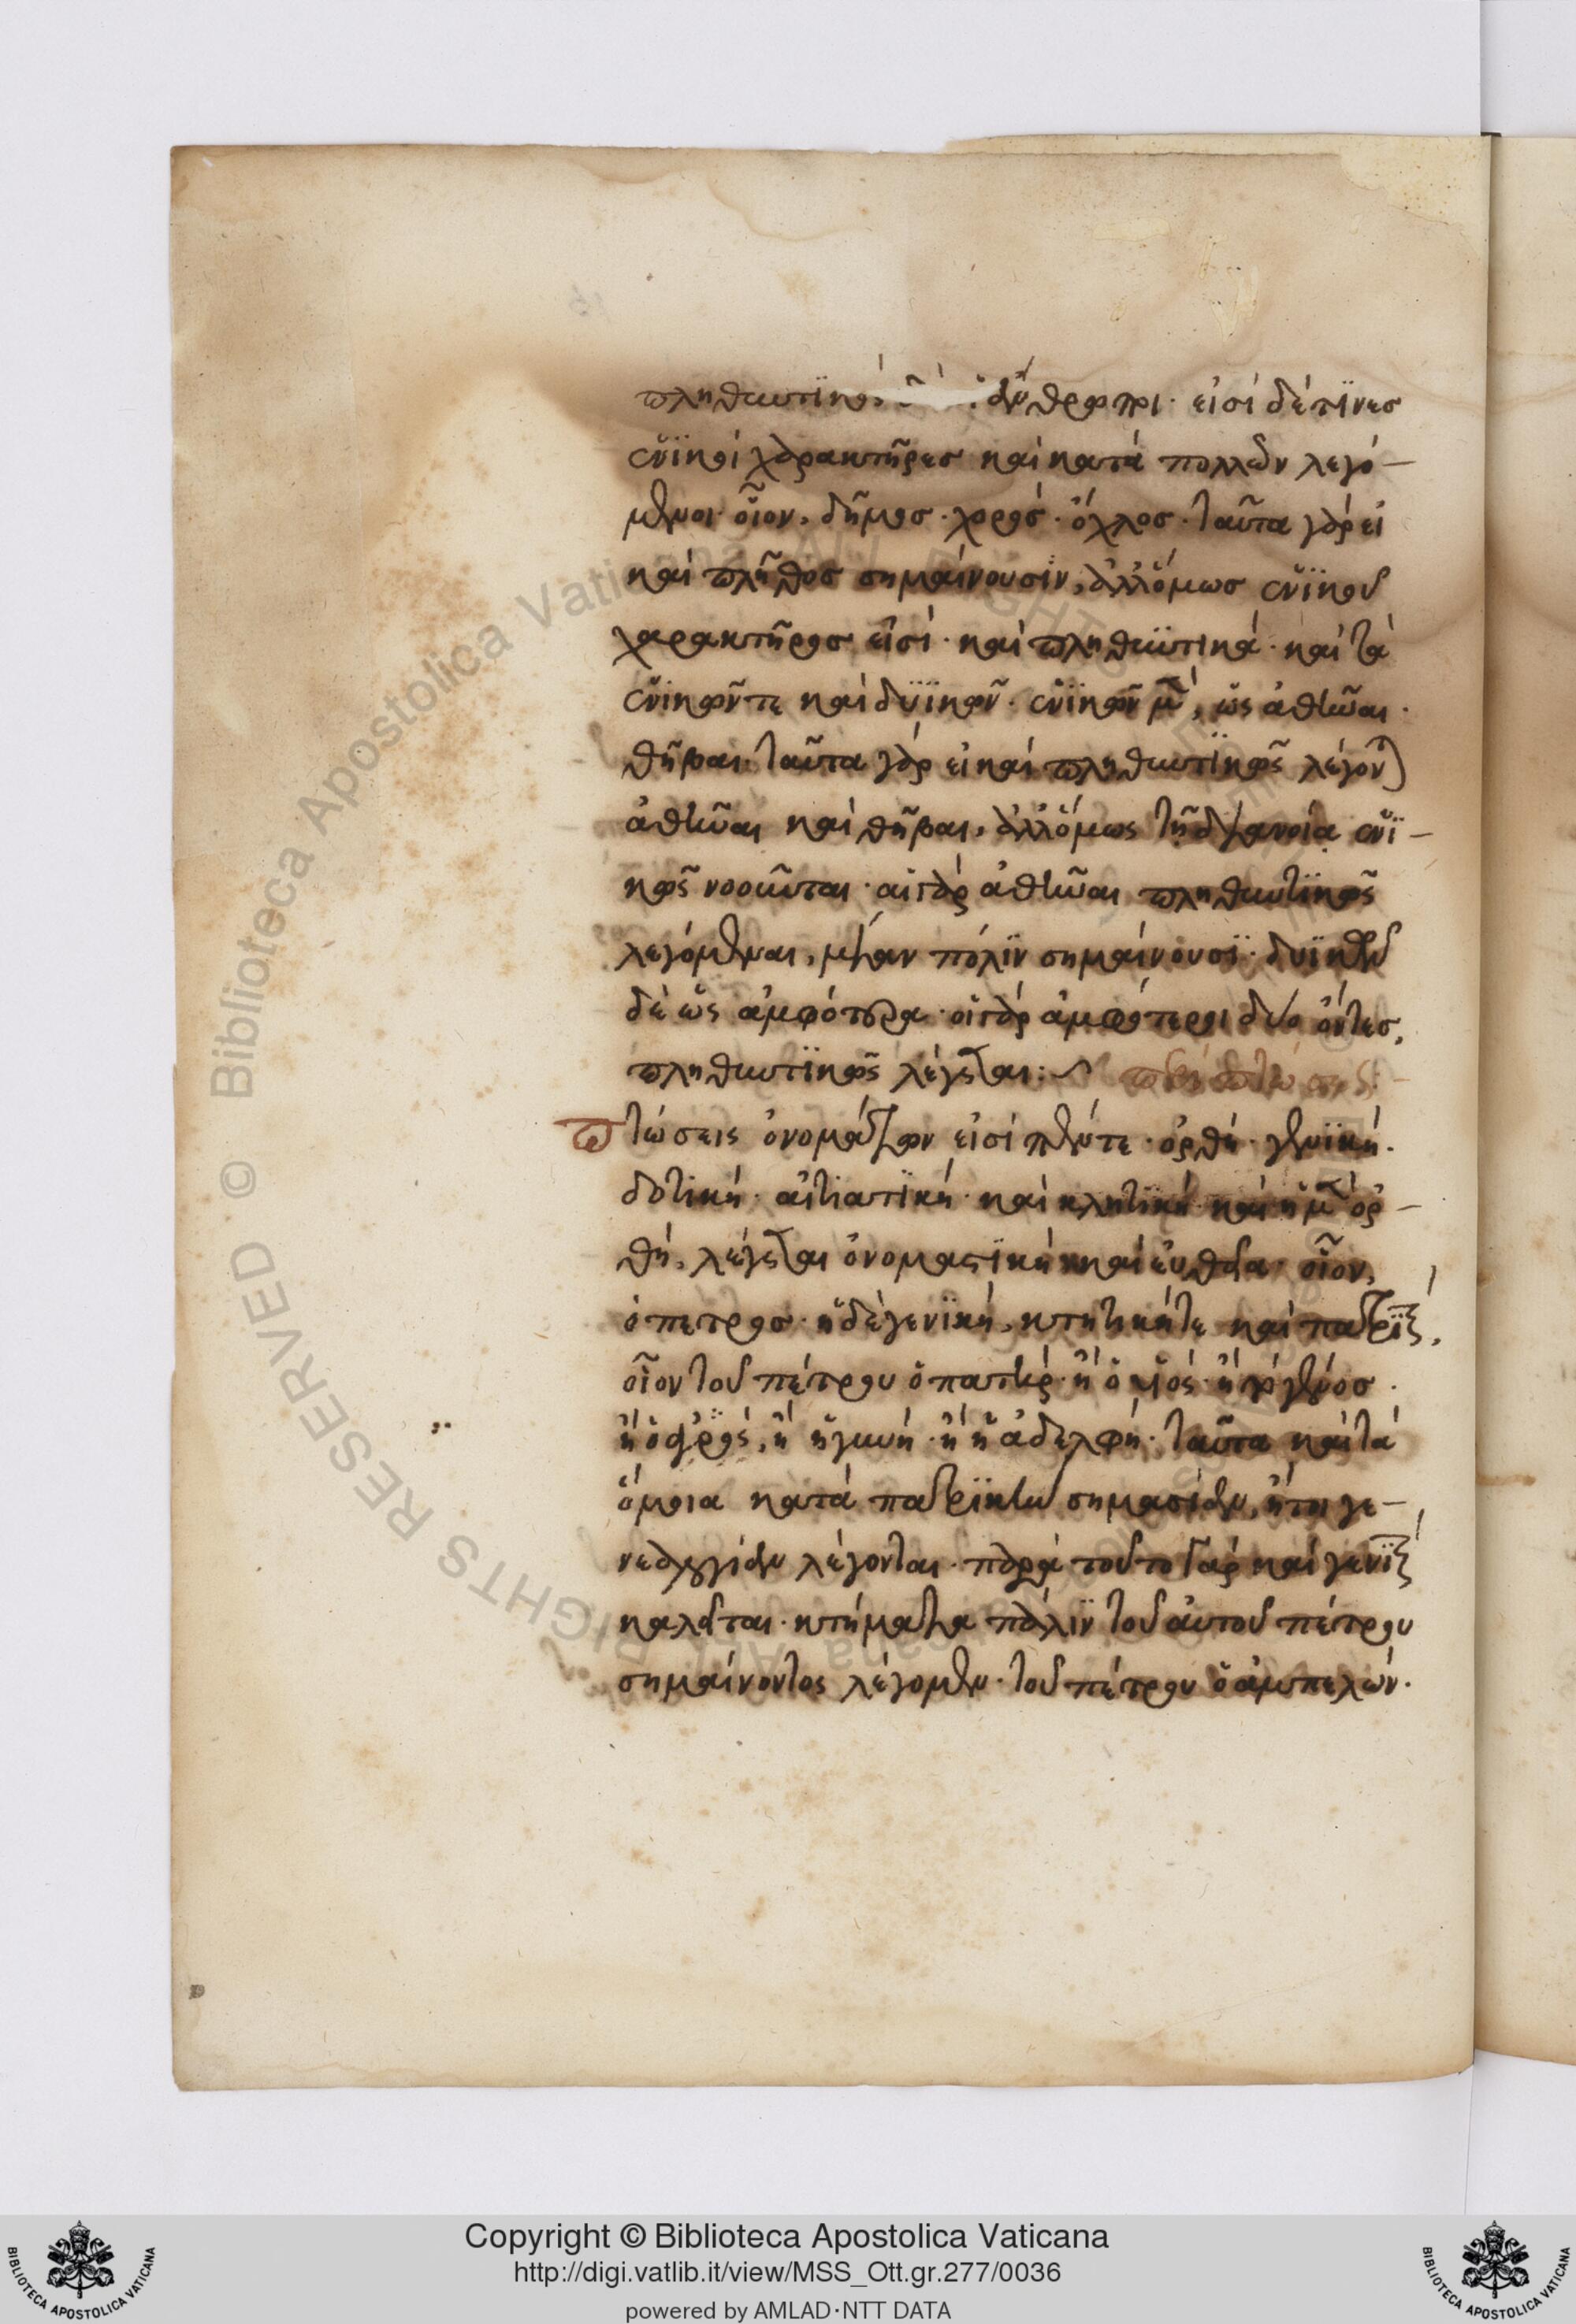 πληθυντικός οἱ ἄνθρωποι· εἰσὶ δέ τινες
ἑνικοὶ χαρακτῆρες καὶ κατὰ πολλῶν λεγό-
μενοι· οἷον, δῆμος· χορός· ὄχλος· ταῦτα γὰρ εἰ
καὶ πλῆθος σημαίνουσιν, ἀλλ' ὅμως ἑνικοῦ
χαρακτῆρος εἰσί· καὶ πληθυντικὰ· καὶ τὰ
ἑνικῶν τε καὶ δυϊκῶν· ἑνικῶν μὲν, ὡς ἀθῆναι·
θῆβαι· ταῦτα γὰρ εἰ καὶ πληθυντικῶς λέγονται
ἀθῆναι καὶ θῆβαι, ἀλλ' ὅμως τῇ διανοία ἑνι-
κῶς νοοῦνται· αἱ γὰρ ἀθῆναι πληθυντικῶς
λεγόμεναι, μίαν πόλιν σημαίνουσι· δυϊκῶν
δὲ ὡς ἀμφότερα· οἱ γὰρ ἀμφότεροι δύο ὄντες,
πληθυντικῶς λέγεται:
Πτώσεις ὀνομάτων εἰσὶ πέντε· ὀρθή· γενική·
δοτική· αἰτιατική· καὶ κλητική· καὶ ἡ μὲν ὀρ-
θή, λέγεται ὀνομαστική καὶ εὐθεῖα· οἷον,
ὁ πέτρος· ἡ δὲ γενική, κτητική τε καὶ πατρική,
οἷον τοῦ πέτρου ὁ πατήρ· ἢ ὁ υἱός· ἢ ἔγγονος·
ἢ ὁ ἀγρός, ἢ ἡ γυνή· ἢ ἡ ἀδελφή· ταῦτα καὶ τὰ
ὅμοια κατὰ πατρικὴν σημασίαν, ἤτοι γε-
νεαλογίαν λέγονται· παρὰ τοῦτο γὰρ καὶ γενικὴ
καλεῖται· κτήματα πάλιν τοῦ αὐτοῦ πέτρου
σημαίνοντος λέγομεν· τοῦ πέτρου ὁ ἀμπελών·
Copyright © Biblioteca Apostolica Vaticana
http://digi.vatlib.it/view/MSS_Ott.gr.277/0036
powered by AMLAD·NTT DATA